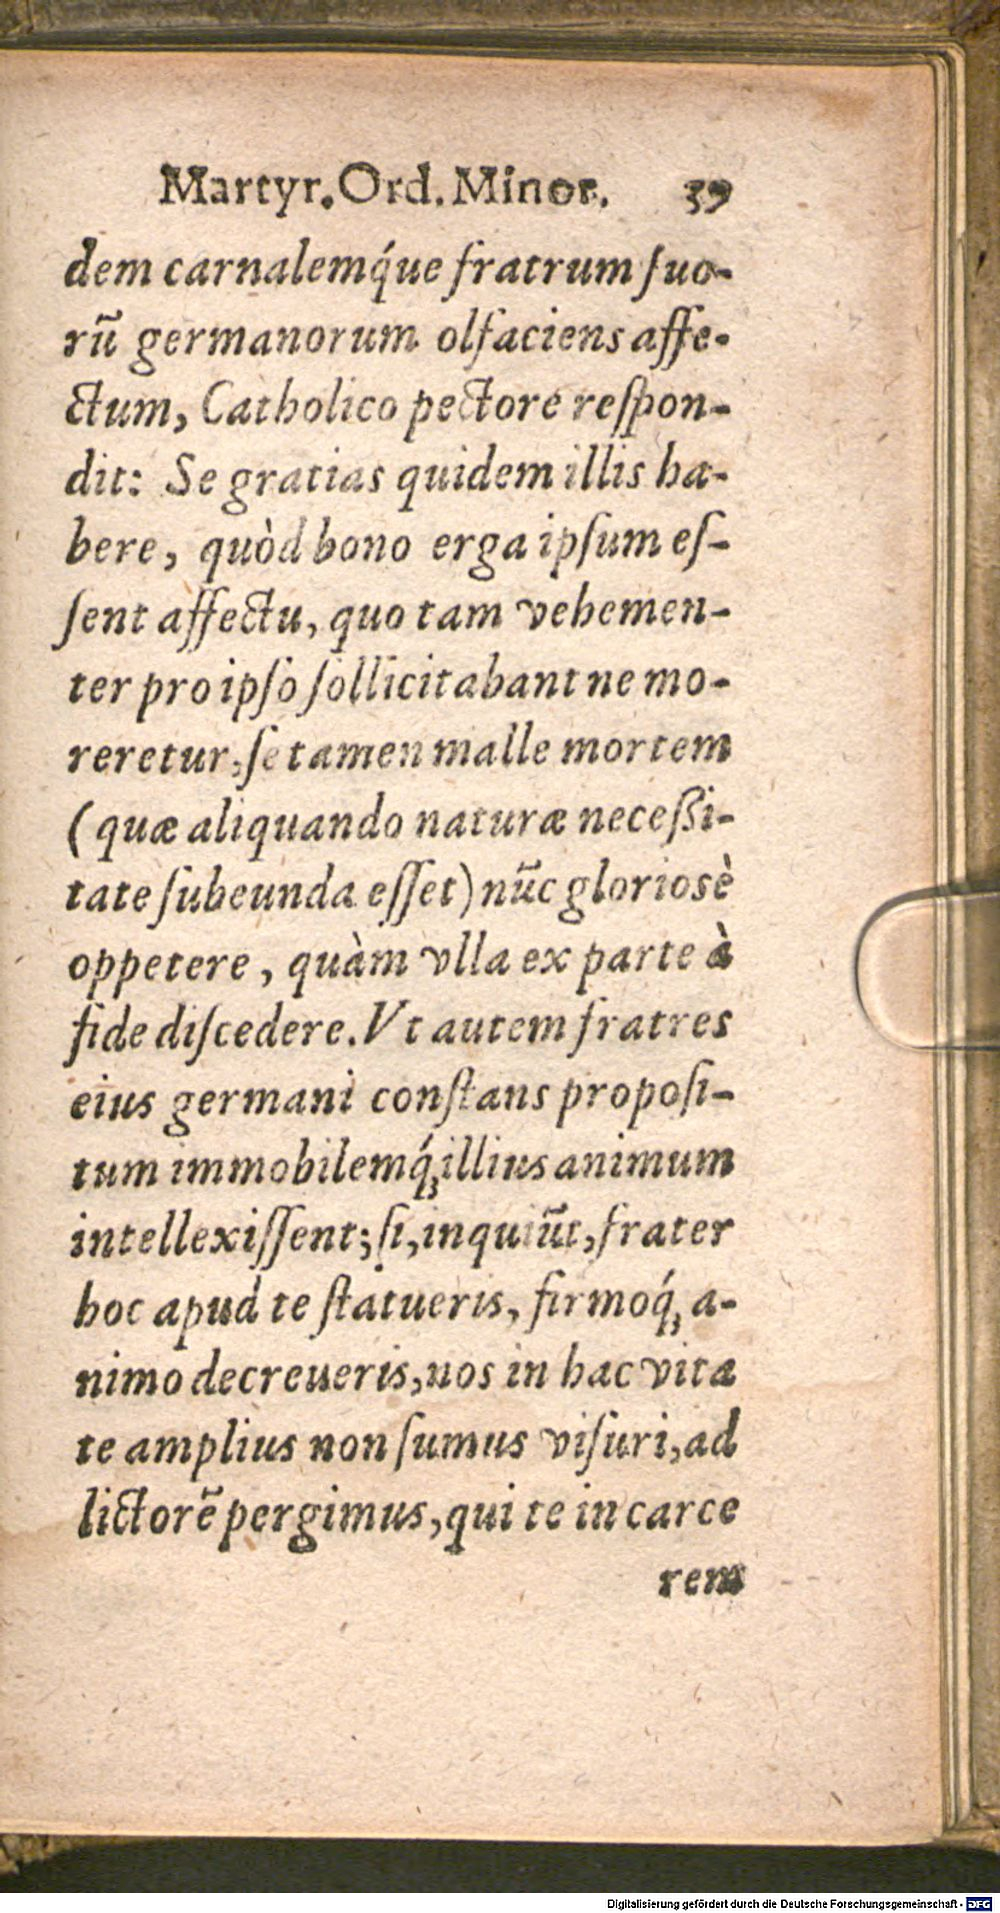 Martyr. Ord. Minor. 39
dem carnalemq́ue fratrum ſuo-
rū germanorum olfaciens affe-
ctum, Catholico pectore reſpon-
dit: Se gratias quidem illis ha-
bere, quòd bono erga ipſum eſ-
ſent affectu, quo tam vehemen-
ter pro ipſo ſollicitabant ne mo-
reretur, ſe tamen malle mortem
(quæ aliquando naturæ neceßi-
tate ſubeunda eſſet) nūc gloriosè
oppetere, quàm vlla ex parte à
fide diſcedere. Vt autem fratres
eius germani conſtans propoſi-
tum immobilemq́; illius animum
intellexiſſent; ſi, inquiūt, frater
hoc apud te ſtatueris, firmoq́; a-
nimo decreueris, nos in hac vita
te amplius non ſumus viſuri, ad
lictorē pergimus, qui te in carce
rem
Digitalisierung gefördert durch die Deutsche Forschungsgemeinschaft - DFG